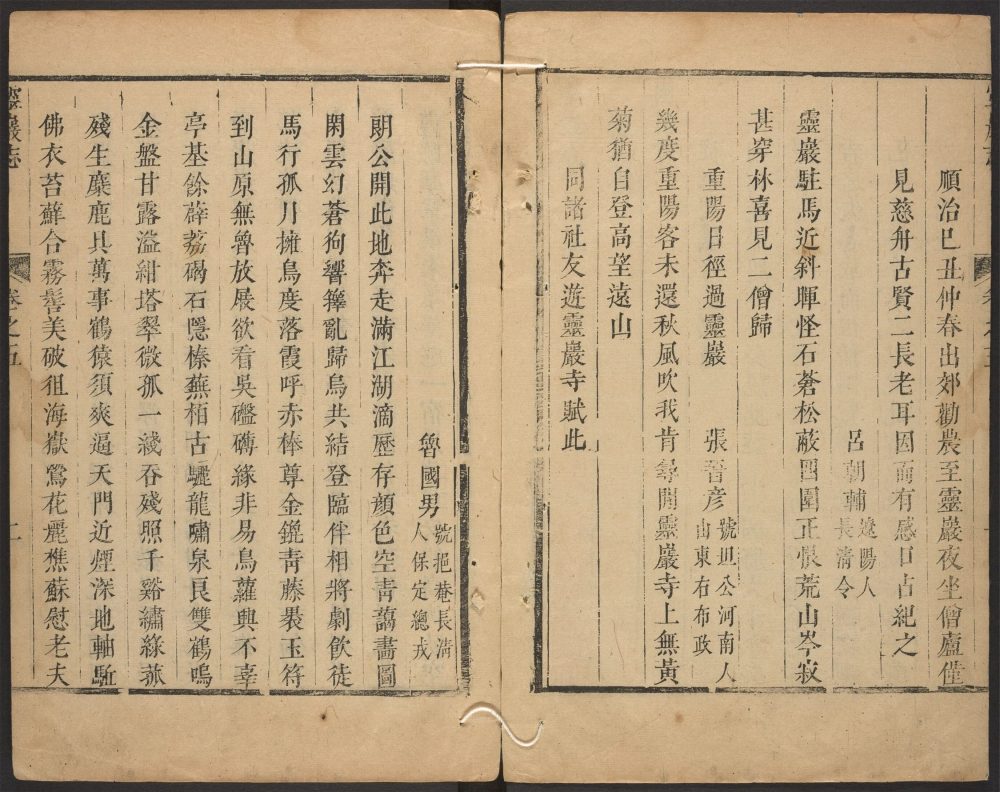 順治己丑仲春出郊勸農至靈巖夜坐僧廬僅
見慈舟古賢二長老耳因而有感口占紀之
呂朝輔 遼陽人
長清令
靈巖駐馬近斜暉怪石蒼松蔽四圍正恨荒山岑寂
甚穿林喜見二僧歸
重陽日徑過靈巖
張晉彥 號坦公河南人
山東右布政
幾度重陽客未還秋風吹我肯尋閒靈巖寺上無黃
菊猶自登高望遠山
同諸社友遊靈巖寺賦此
魯國男 號挹菴長清
人保定總戎
朗公開此地奔走滿江湖滴瀝存顏色空青藹畵圖
閑雲幻蒼狗響籜亂歸烏共結登臨伴相將劇飲徒
馬行孤月擁鳥度落霞呼赤棒尊金鎞靑藤裹玉符
到山原無魯放屐欲看吳礷礴緣非易鳥蘿興不辜
亭基餘薜荔碣石隱榛蕪栢古驪龍嘯泉良雙鶴嗚
金盤甘露溢紺塔翠微孤一綫吞殘照千谿繡綠菰
殘生麋鹿具萬事鶴猿須爽逼天門近煙深地軸駈
佛衣苔蘚合霧髻美破徂海嶽鶯花麗樵蘇慰老夫
靈巖志
卷之五
二